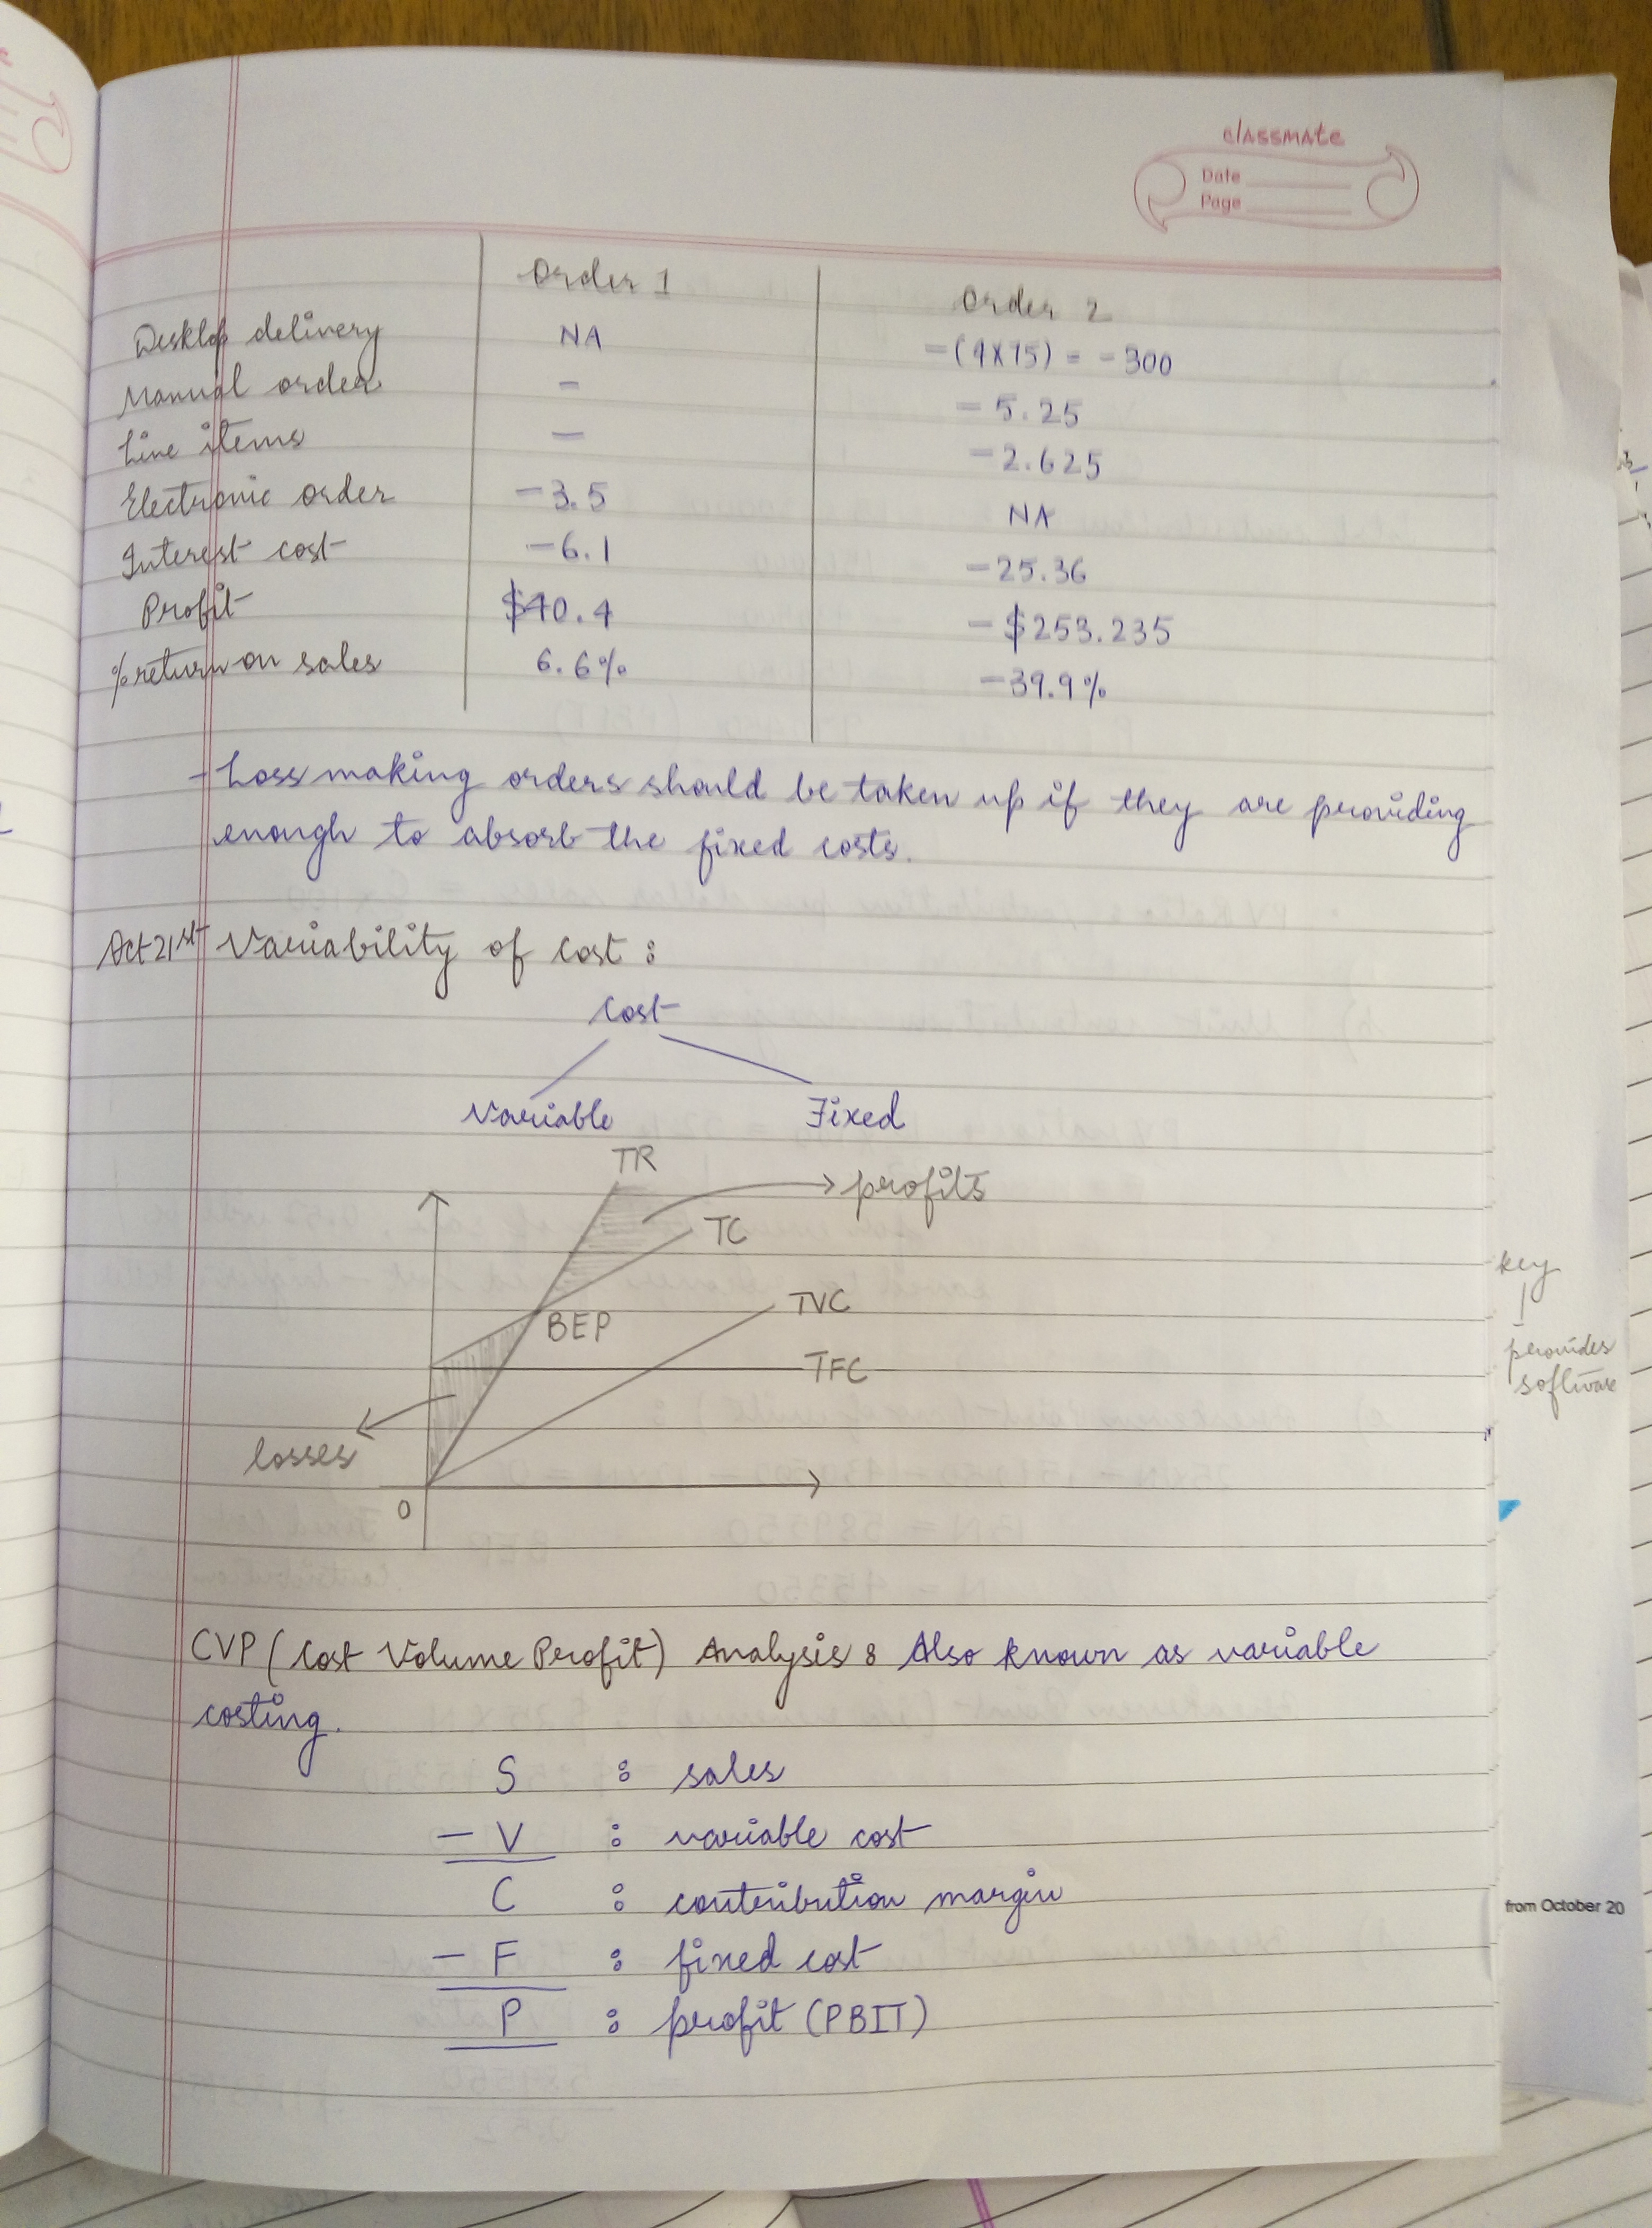 classmate
Date
Page
Order 1 Order 2
Desktop delivery NA -(4x75) = -300
Manual order - -5.25
Line items - -2.625
Electronic order -3.5 NA
Interest cost -6.1 -25.36
Profit $40.4 -$253.235
% return on sales 6.6% -39.9%
- Loss making orders should be taken up if they are providing
enough to absorb the fixed costs.
Oct 21st Variability of cost :
Cost
Variable Fixed
TR
profits
TC
TVC
BEP
TFC
losses
0
key
provides
software
CVP (Cost Volume Profit) Analysis : Also known as variable
costing.
S : sales
- V : variable cost
C : contribution margin
from October 20
- F : fixed cost
P : profit (PBIT)